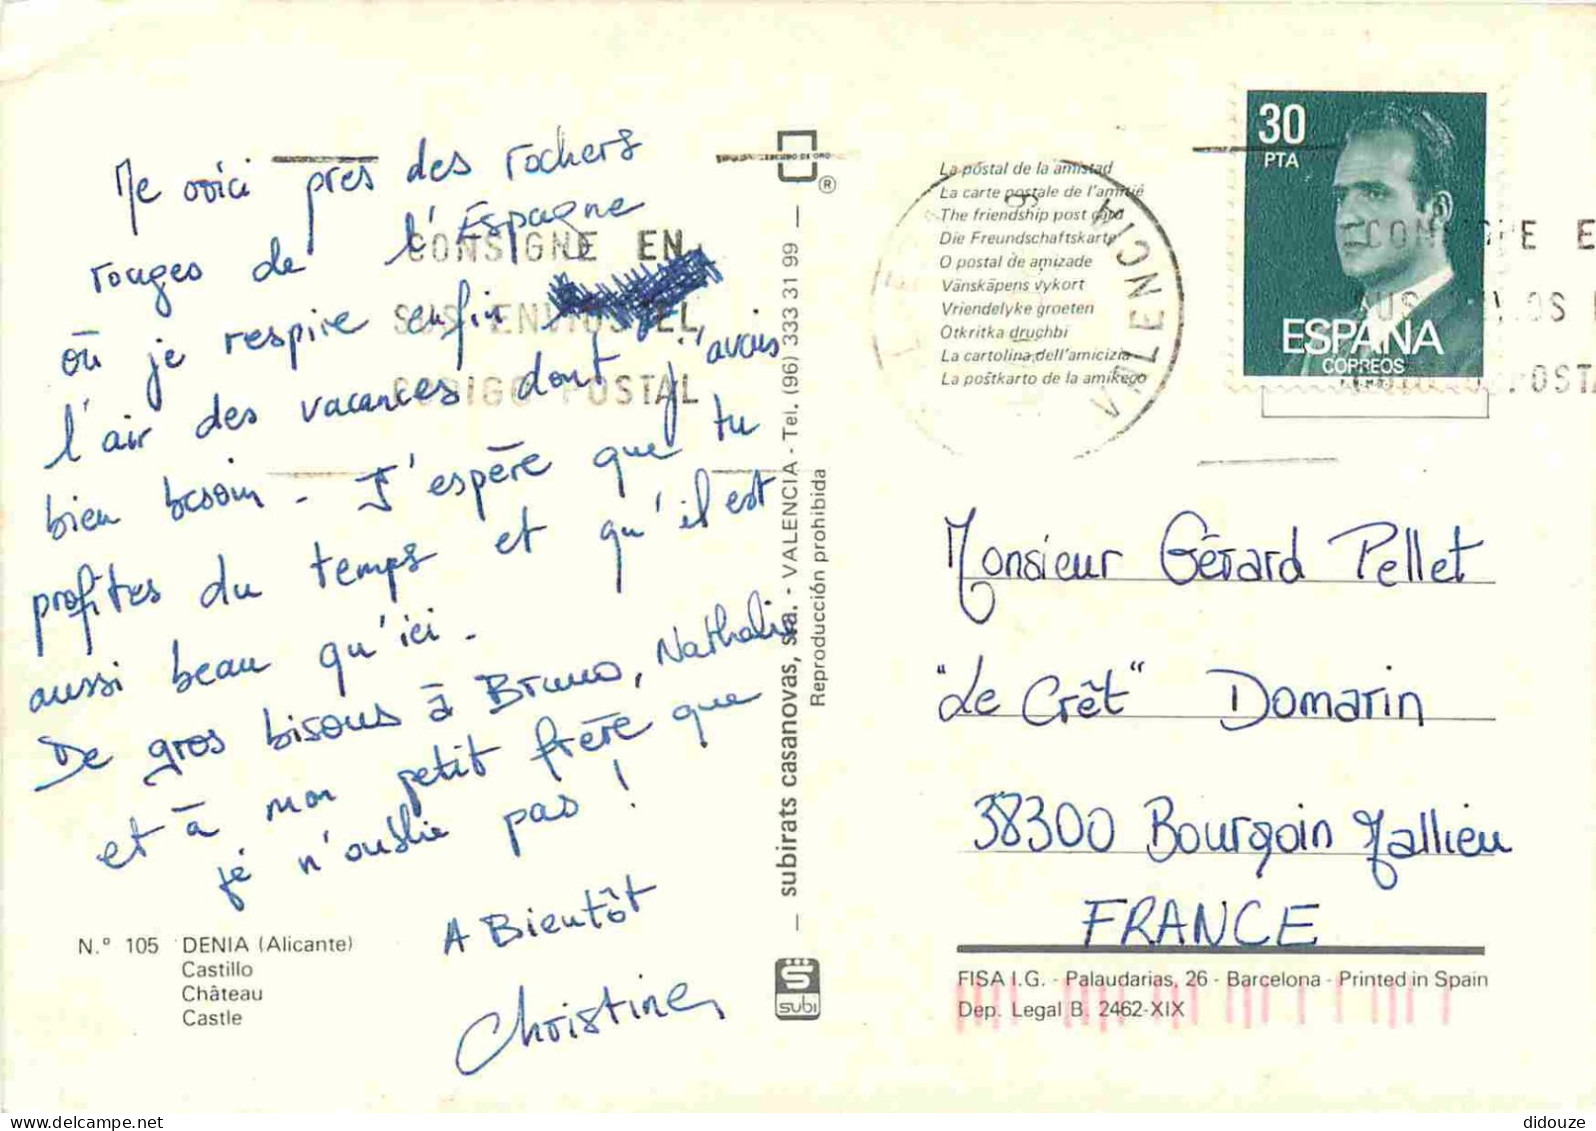 Me voici près des rochers
rouges de l'Espagne
où je respire enfin
l'air des vacances dont j'avais
bien besoin - J'espère que tu
profites du temps et qu'il est
aussi beau qu'ici -
De gros bisous à Bruno, Nathalie
et à mon petit frère que
je n'oublie pas !
A Bientôt
Christine
N.º 105 DENIA (Alicante)
Castillo
Château
Castle
CONSIGNE EN
SUS ENVIOS EL
CODIGO POSTAL
®
— subirats casanovas, sra. - VALENCIA - Tel. (96) 333 31 99 —
Reproducción prohibida
subi
La postal de la amistad
La carte postale de l'amitié
The friendship post card
Die Freundschaftskarte
O postal de amizade
Vänskäpens vykort
Vriendelyke groeten
Otkritka druchbi
La cartolina dell'amicizia
La poštkarto de la amikego
VALENCIA
30
PTA
ESPAÑA
CORREOS
Monsieur Gérard Pellet
"Le Crêt" Domarin
38300 Bourgoin Jallieu
FRANCE
FISA I.G. - Palaudarias, 26 - Barcelona - Printed in Spain
Dep. Legal B. 2462-XIX
delcampe.net
didouze